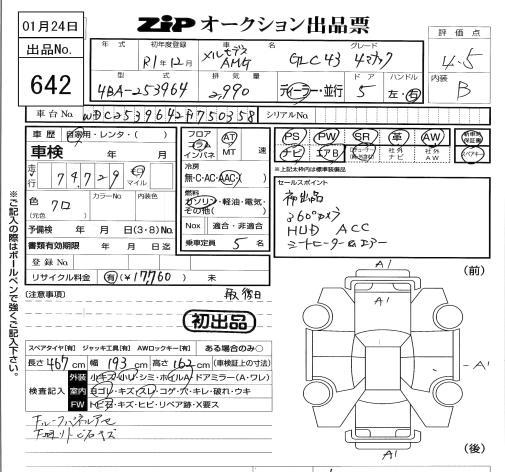 01月24日
ZIP オークション出品票
出品No.
642
年 式
初年度登録
車 名
グレード
評価点
R1年12月
メルセデス
AMG
GLC43
4マチック
4.5
型 式
排 気 量
ドア
ハンドル
内装
4BA-253964
2,990
ディーラー・並行
5
左・右
B
車台No.
WDC2539642F750358
シリアルNo.
車 歴
自家用・レンタ・( )
車検
年 月
走行
74,729
キロ
マイル
色
クロ
(元色 )
カラーNo.
内装色
予備検 年 月 日(3・8)No.
書類有効期限 年 月 日迄
登録No.
リサイクル料金
有(¥17,760) 未
フロア
コラム
インパネ
AT
MT
速
冷房
無・C・AC・AAC
燃料
ガソリン・軽油・電気・
その他( )
Nox 適合・非適合
乗車定員 5 名
PS
PW
SR
革
AW
新車時保証書
ナビ
エアB
社外ナビ
社外AW
スペアキー
※上記太枠内は標準装備品
セールスポイント
初出品
360°カメラ
HUD ACC
シートヒーター&エアー
※ご記入の際はボールペンで強くご記入下さい。
(注意事項)
取 後日
初出品
スペアタイヤ[有] ジャッキ工具[有] AWロックキー[有] ある場合のみ○
長さ 467 cm 幅 193 cm 高さ 162 cm (車検証上の寸法)
検査記入
外装 小キズ・小U・シミ・ホイルA・ドアミラー(A・ワレ)
室内 ヨゴレ・キズ・スレ・コゲ・穴・キレ・破れ・ウキ
FW トビ石・キズ・ヒビ・リペア跡・X要ス
(前)
A1
A1
A1
A1
(後)